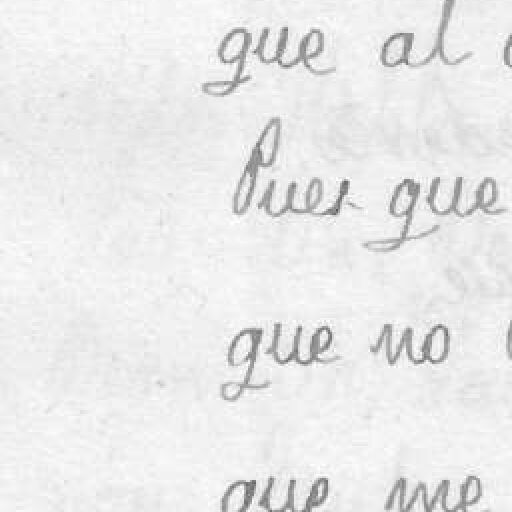 que al
Pues que
que no
que me